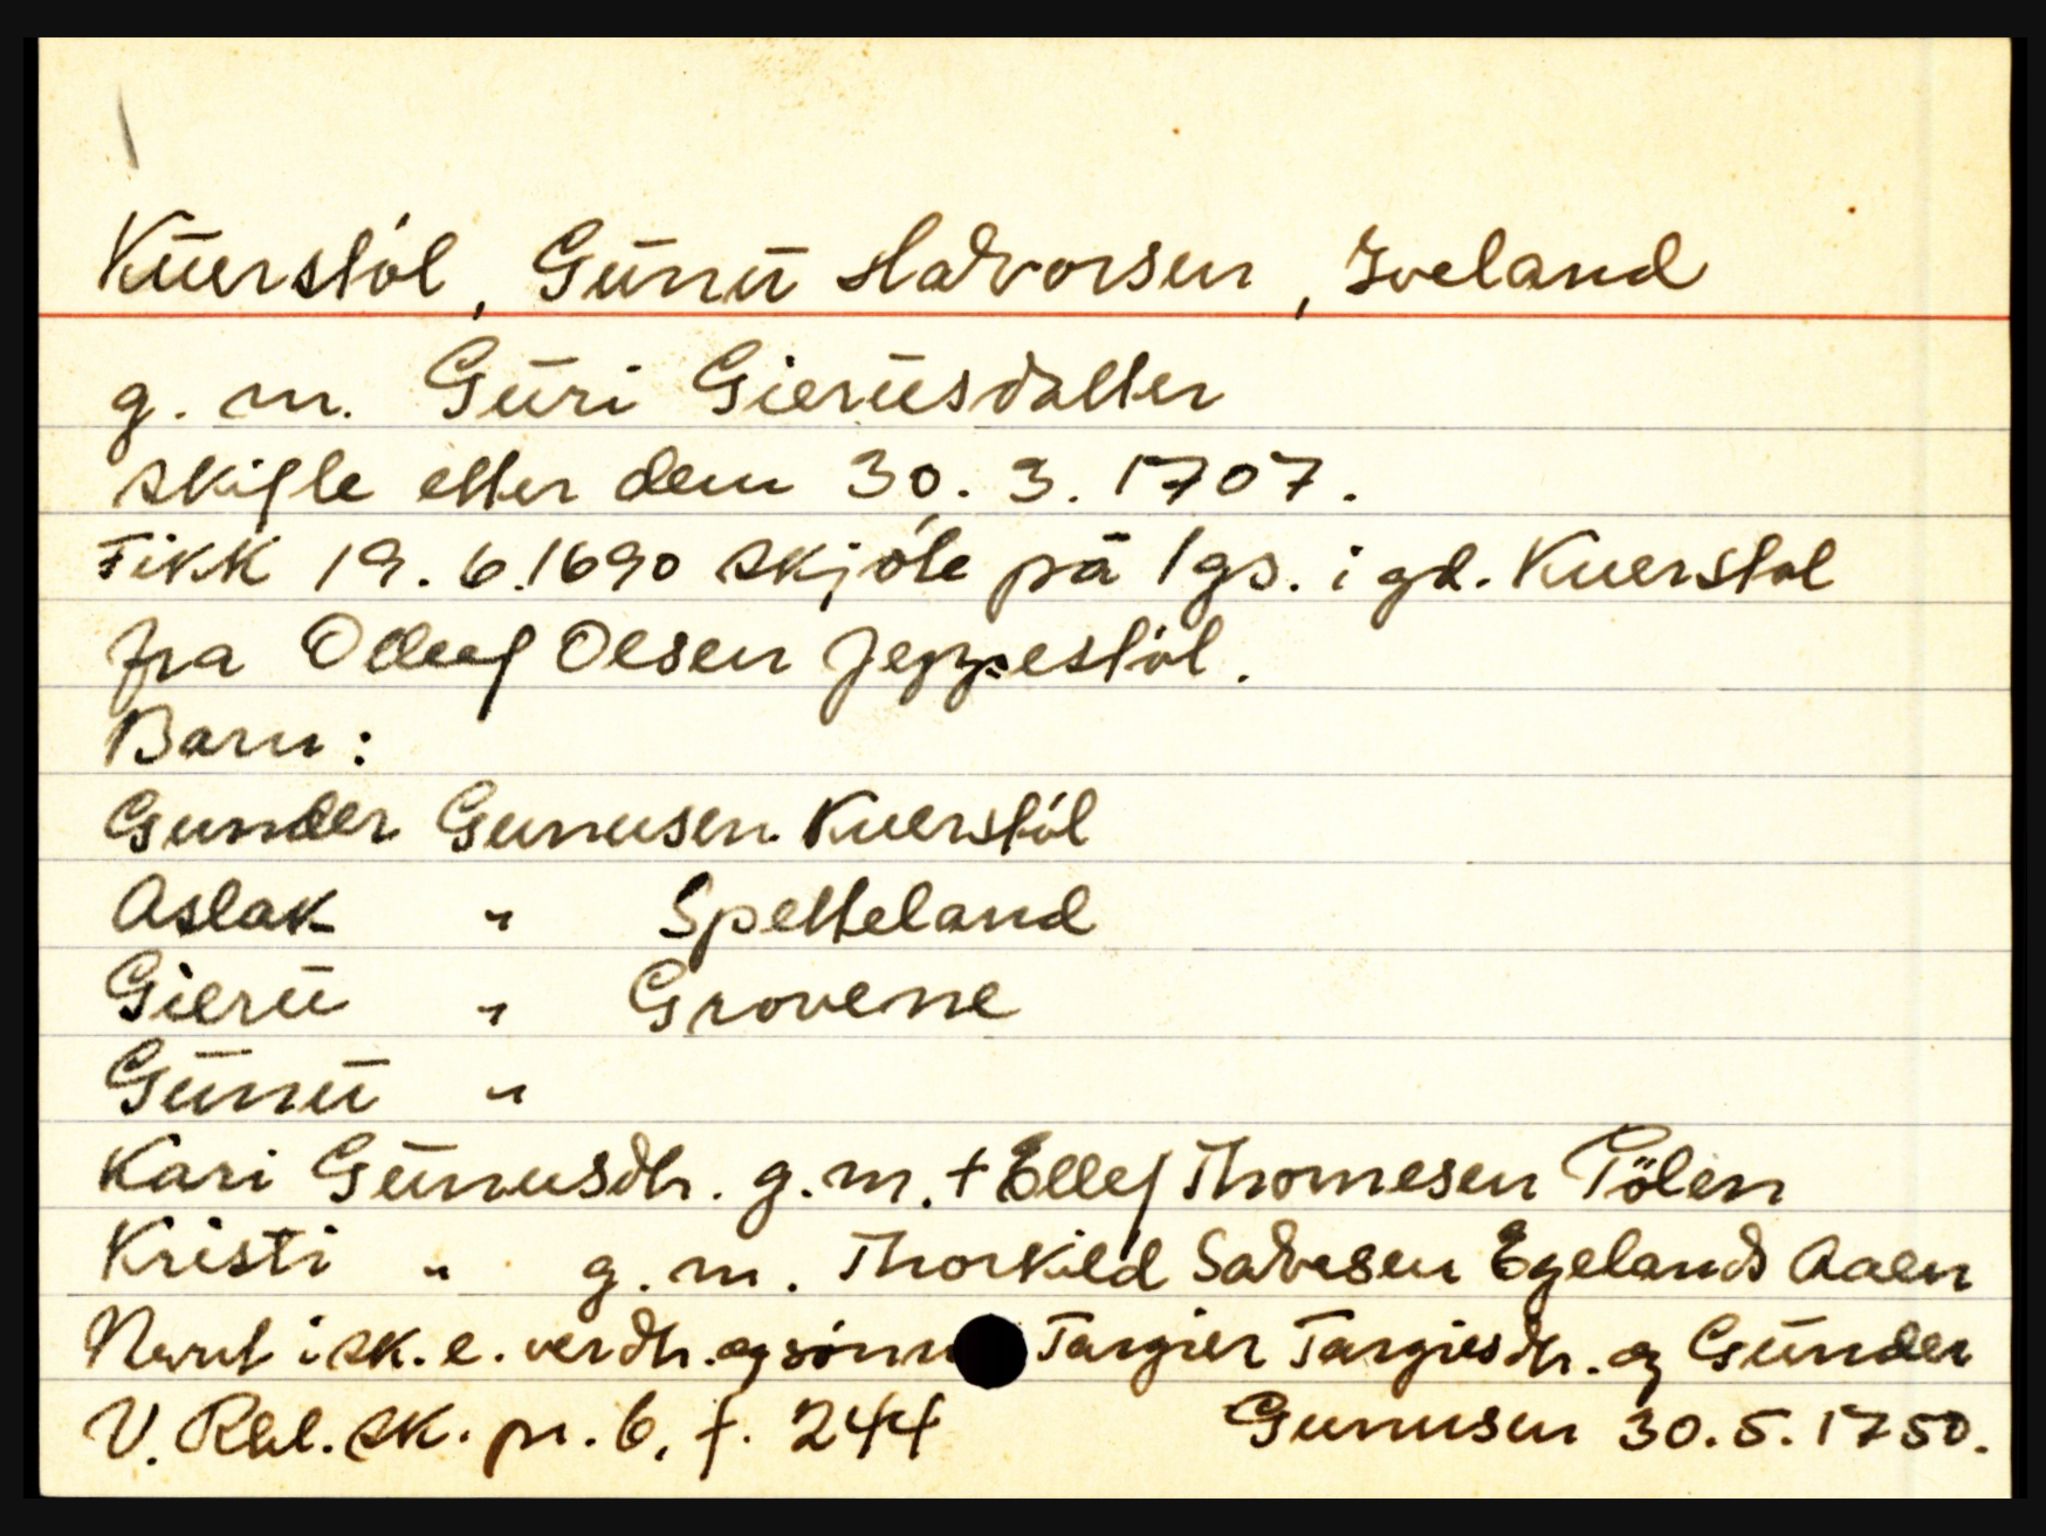 Kuerstøl, Gunu Halvorsen, Iveland
g. m. Guri Gierusdatter
skifte etter dem 30. 3. 1707.
Fikk 19. 6. 1690 skjøte på 1 gs. i gd. Kuerstøl
fra Olluf Olsen Jeppestøl.
Barn:
Gunder Gunusen Kuerstøl
Aslak " Spetteland
Gieru " Grovene
Gunu "
Kari Gunusdtr. g. m. + Ellef Thomesen Tölen
Kristi " g. m. Thorkild Salvesen Egelands Aaen
Nevnt i sk. e. verdtr. og sønn Targier Targiesdtr. og Gunder
Gunusen 30. 5. 1750.
V. Rbl. sk. pr. 6, f. 244